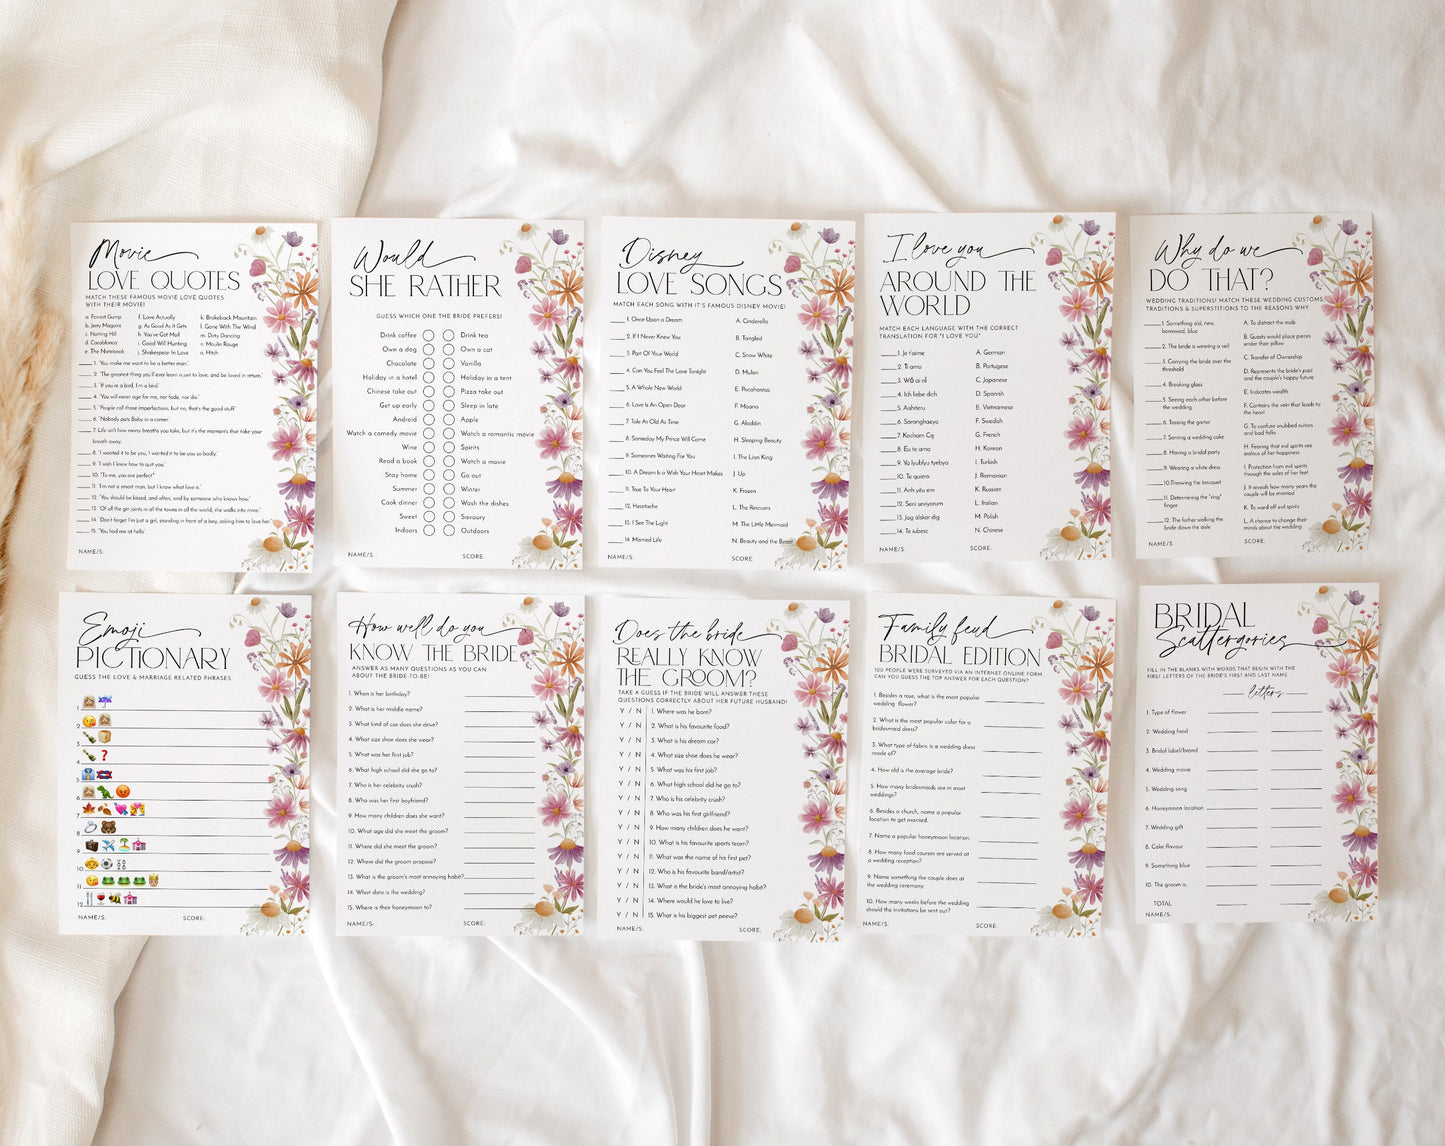 Movie
LOVE QUOTES
MATCH THESE FAMOUS MOVIE LOVE QUOTES
WITH THEIR MOVIE!
a. Forrest Gump
b. Jerry Maguire
c. Notting Hill
d. Casablanca
e. The Notebook
f. Love Actually
g. As Good As It Gets
h. You've Got Mail
i. Good Will Hunting
j. Shakespear In Love
k. Brokeback Mountain
l. Gone With The Wind
m. Dirty Dancing
n. Moulin Rouge
o. Hitch
1. 'You make me want to be a better man.'
2. 'The greatest thing you'll ever learn is just to love, and be loved in return.'
3. 'If you're a bird, I'm a bird.'
4. 'You will never age for me, nor fade, nor die.'
5. 'People call those imperfections, but no, that's the good stuff.'
6. 'Nobody puts Baby in a corner.'
7. Life isn't how many breaths you take, but it's the moments that take your
breath away.
8. 'I wanted it to be you, I wanted it to be you so badly.'
9. 'I wish I knew how to quit you.'
10. "To me, you are perfect"
11. 'I'm not a smart man, but I know what love is.'
12. 'You should be kissed, and often, and by someone who knows how.'
13. 'Of all the gin joints in all the towns in all the world, she walks into mine.'
14. 'Don't forget I'm just a girl, standing in front of a boy, asking him to love her.'
15. 'You had me at hello'
NAME/S:
Would
SHE RATHER
GUESS WHICH ONE THE BRIDE PREFERS!
Drink coffee Drink tea
Own a dog Own a cat
Chocolate Vanilla
Holiday in a hotel Holiday in a tent
Chinese take out Pizza take out
Get up early Sleep in late
Android Apple
Watch a comedy movie Watch a romantic movie
Wine Spirits
Read a book Watch a movie
Stay home Go out
Summer Winter
Cook dinner Wash the dishes
Sweet Savoury
Indoors Outdoors
NAME/S: SCORE:
Disney
LOVE SONGS
MATCH EACH SONG WITH IT'S FAMOUS DISNEY MOVIE!
1. Once Upon a Dream A. Cinderella
2. If I Never Knew You B. Tangled
3. Part Of Your World C. Snow White
4. Can You Feel The Love Tonight D. Mulan
5. A Whole New World E. Pocahontas
6. Love Is An Open Door F. Moana
7. Tale As Old As Time G. Aladdin
8. Someday My Prince Will Come H. Sleeping Beauty
9. Someones Waiting For You I. The Lion King
10. A Dream Is a Wish Your Heart Makes J. Up
11. True To Your Heart K. Frozen
12. Heartache L. The Rescuers
13. I See The Light M. The Little Mermaid
14. Married Life N. Beauty and the Beast
NAME/S: SCORE:
I love you
AROUND THE
WORLD
MATCH EACH LANGUAGE WITH THE CORRECT
TRANSLATION FOR "I LOVE YOU"
1. Je t'aime A. German
2. Ti amo B. Portugese
3. Wǒ ài nǐ C. Japanese
4. Ich liebe dich D. Spanish
5. Aishiteru E. Vietnamese
6. Saranghaeyo F. Swedish
7. Kocham Cię G. French
8. Eu te amo H. Korean
9. Ya lyublyu tyebya I. Turkish
10. Te quiero J. Romanian
11. Anh yêu em K. Russian
12. Seni seviyorum L. Italian
13. Jag älskar dig M. Polish
14. Te iubesc N. Chinese
NAME/S: SCORE:
Why do we
DO THAT?
WEDDING TRADITIONS! MATCH THESE WEDDING CUSTOMS,
TRADITIONS & SUPERSTITIONS TO THE REASONS WHY.
1. Something old, new,
borrowed, blue
2. The bride is wearing a veil
3. Carrying the bride over the
threshold
4. Breaking glass
5. Seeing each other before
the wedding
6. Tossing the garter
7. Serving a wedding cake
8. Having a bridal party
9. Wearing a white dress
10.Throwing the bouquet
11. Determining the "ring"
finger
12. The father walking the
bride down the aisle
A. To distract the mob
B. Guests would place pieces
under their pillow
C. Transfer of Ownership
D. Represents the bride's past
and the couple's happy future
E. Indicates wealth
F. Contains the vein that leads to
the heart
G. To confuse snubbed suitors
and bad folks
H. Fearing that evil spirits are
jealous of her happiness
I. Protection from evil spirits
through the soles of her feet
J. It reveals how many years the
couple will be married
K. To ward off evil spirits
L. A chance to change their
minds about the wedding
NAME/S: SCORE:
Emoji
PICTIONARY
GUESS THE LOVE & MARRIAGE RELATED PHRASES
1.
2.
3.
4.
5.
6.
7.
8.
9.
10.
11.
12.
NAME/S: SCORE:
How well do you
KNOW THE BRIDE
ANSWER AS MANY QUESTIONS AS YOU CAN
ABOUT THE BRIDE-TO-BE!
1. When is her birthday?
2. What is her middle name?
3. What kind of car does she drive?
4. What size shoe does she wear?
5. What was her first job?
6. What high school did she go to?
7. Who is her celebrity crush?
8. Who was her first boyfriend?
9. How many children does she want?
10. What age did she meet the groom?
11. Where did she meet the groom?
12. Where did the groom propose?
13. What is the groom's most annoying habit?
14. What date is the wedding?
15. Where is their honeymoon to?
NAME/S: SCORE:
Does the bride
REALLY KNOW
THE GROOM?
TAKE A GUESS IF THE BRIDE WILL ANSWER THESE
QUESTIONS CORRECTLY ABOUT HER FUTURE HUSBAND!
Y / N 1. Where was he born?
Y / N 2. What is his favourite food?
Y / N 3. What is his dream car?
Y / N 4. What size shoe does he wear?
Y / N 5. What was his first job?
Y / N 6. What high school did he go to?
Y / N 7. Who is his celebrity crush?
Y / N 8. Who was his first girlfriend?
Y / N 9. How many children does he want?
Y / N 10. What is his favourite sports team?
Y / N 11. What was the name of his first pet?
Y / N 12. Who is his favourite band/artist?
Y / N 13. What is the bride's most annoying habit?
Y / N 14. Where would he love to live?
Y / N 15. What is his biggest pet peeve?
NAME/S: SCORE:
Family feud
BRIDAL EDITION
100 PEOPLE WERE SURVEYED VIA AN INTERNET ONLINE FORM
CAN YOU GUESS THE TOP ANSWER FOR EACH QUESTION?
1. Besides a rose, what is the most popular
wedding flower?
2. What is the most popular color for a
bridesmaid dress?
3. What type of fabric is a wedding dress
made of?
4. How old is the average bride?
5. How many bridesmaids are in most
weddings?
6. Besides a church, name a popular
location to get married.
7. Name a popular honeymoon location.
8. How many food courses are served at
a wedding reception?
9. Name something the couple does at
the wedding ceremony
10. How many weeks before the wedding
should the invitations be sent out?
NAME/S: SCORE:
BRIDAL
Scattergories
FILL IN THE BLANKS WITH WORDS THAT BEGIN WITH THE
FIRST LETTERS OF THE BRIDE'S FIRST AND LAST NAME
letters
1. Type of flower
2. Wedding food
3. Bridal label/brand
4. Wedding movie
5. Wedding song
6. Honeymoon location
7. Wedding gift
8. Cake flavour
9. Something blue
10. The groom is..
TOTAL
NAME/S: